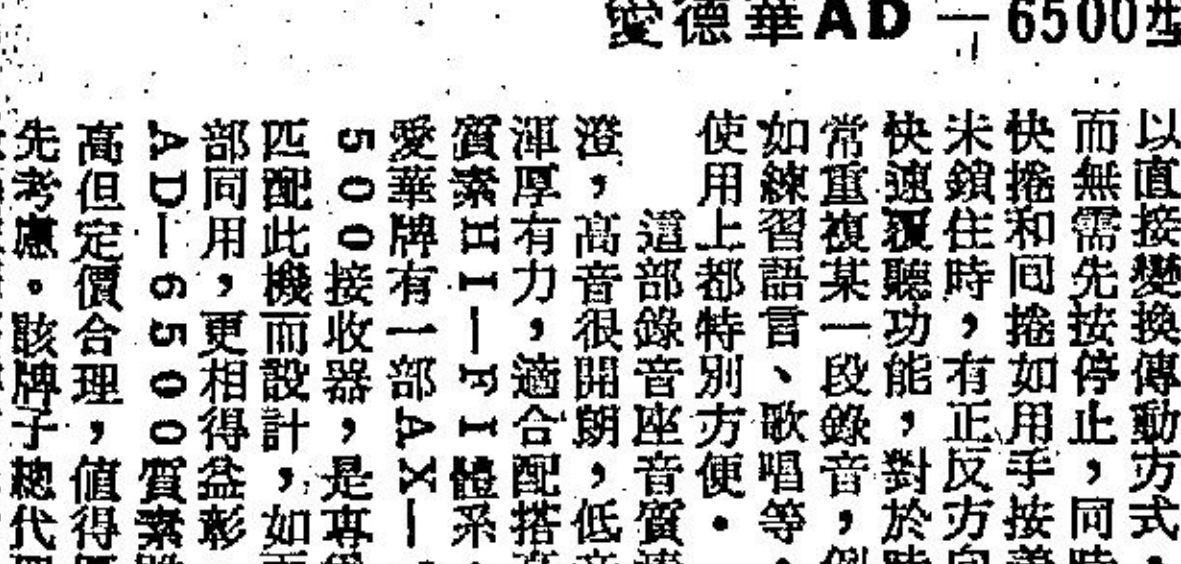 愛德華AD—6500型
以直接變換傳動方式,
而無需先按停止,同時
快捲和回捲如用手按着
未鎖住時,有正反方向
快速覆聽功能,對於時
常重複某一段錄音,例
如練習語言、歌唱等,
使用上都特別方便。
這部錄音座音質
澄,高音很開朗,低音
渾厚有力,適合配搭高
質素HI—FI體系。
愛華牌有一部AX—
500接收器,是專
匹配此機而設計,如兩
部同用,更相得益彰
AD—6500質素
高但定價合理,值得
先考慮。該牌子總代